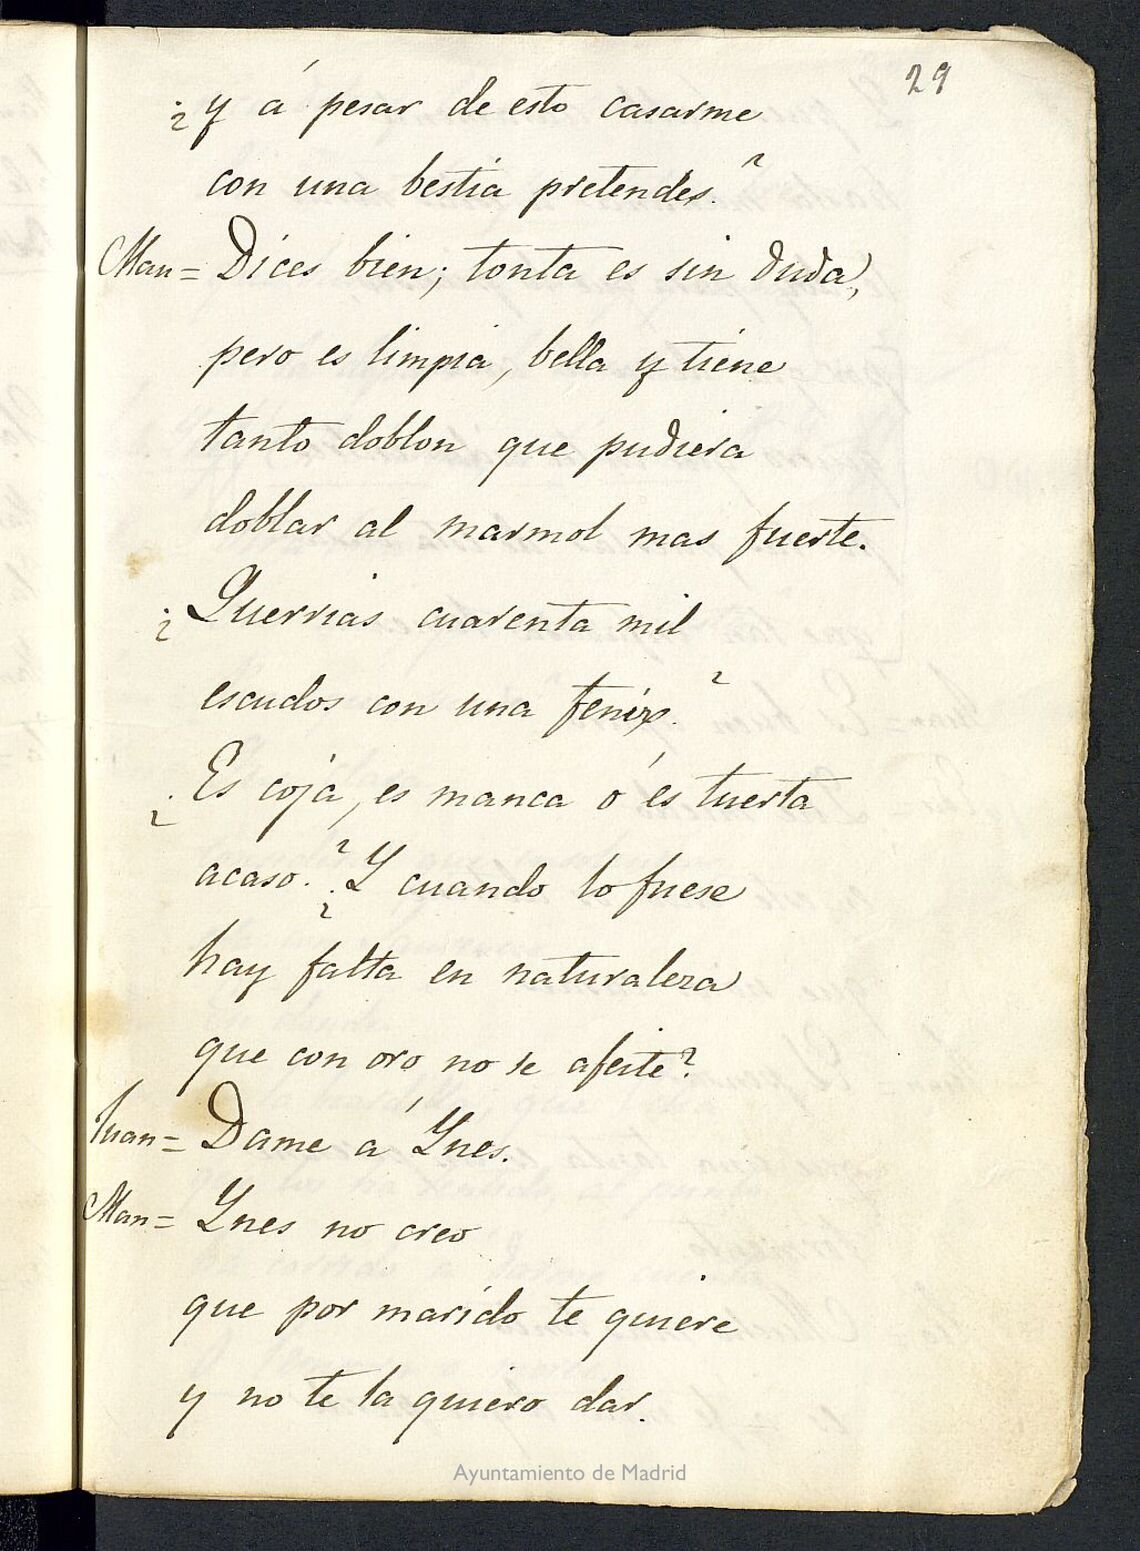 29
¿y á pesar de esto casarme
con una bestia pretendes?
Man= Dices bien; tonta es sin duda,
pero es limpia, bella y tiene
tanto doblon que pudiera
doblar al marmol mas fuerte.
¿Querrias cuarenta mil
escudos con una fenix?
¿Es coja, es manca ó es tuerta
acaso? ¿Y cuando lo fuese
hay falta en naturaleza
que con oro no se afeite?
Juan= Dame á Ynes.
Man= Ynes no creo
que por marido te quiere
y no te la quiero dar.
Ayuntamiento de Madrid